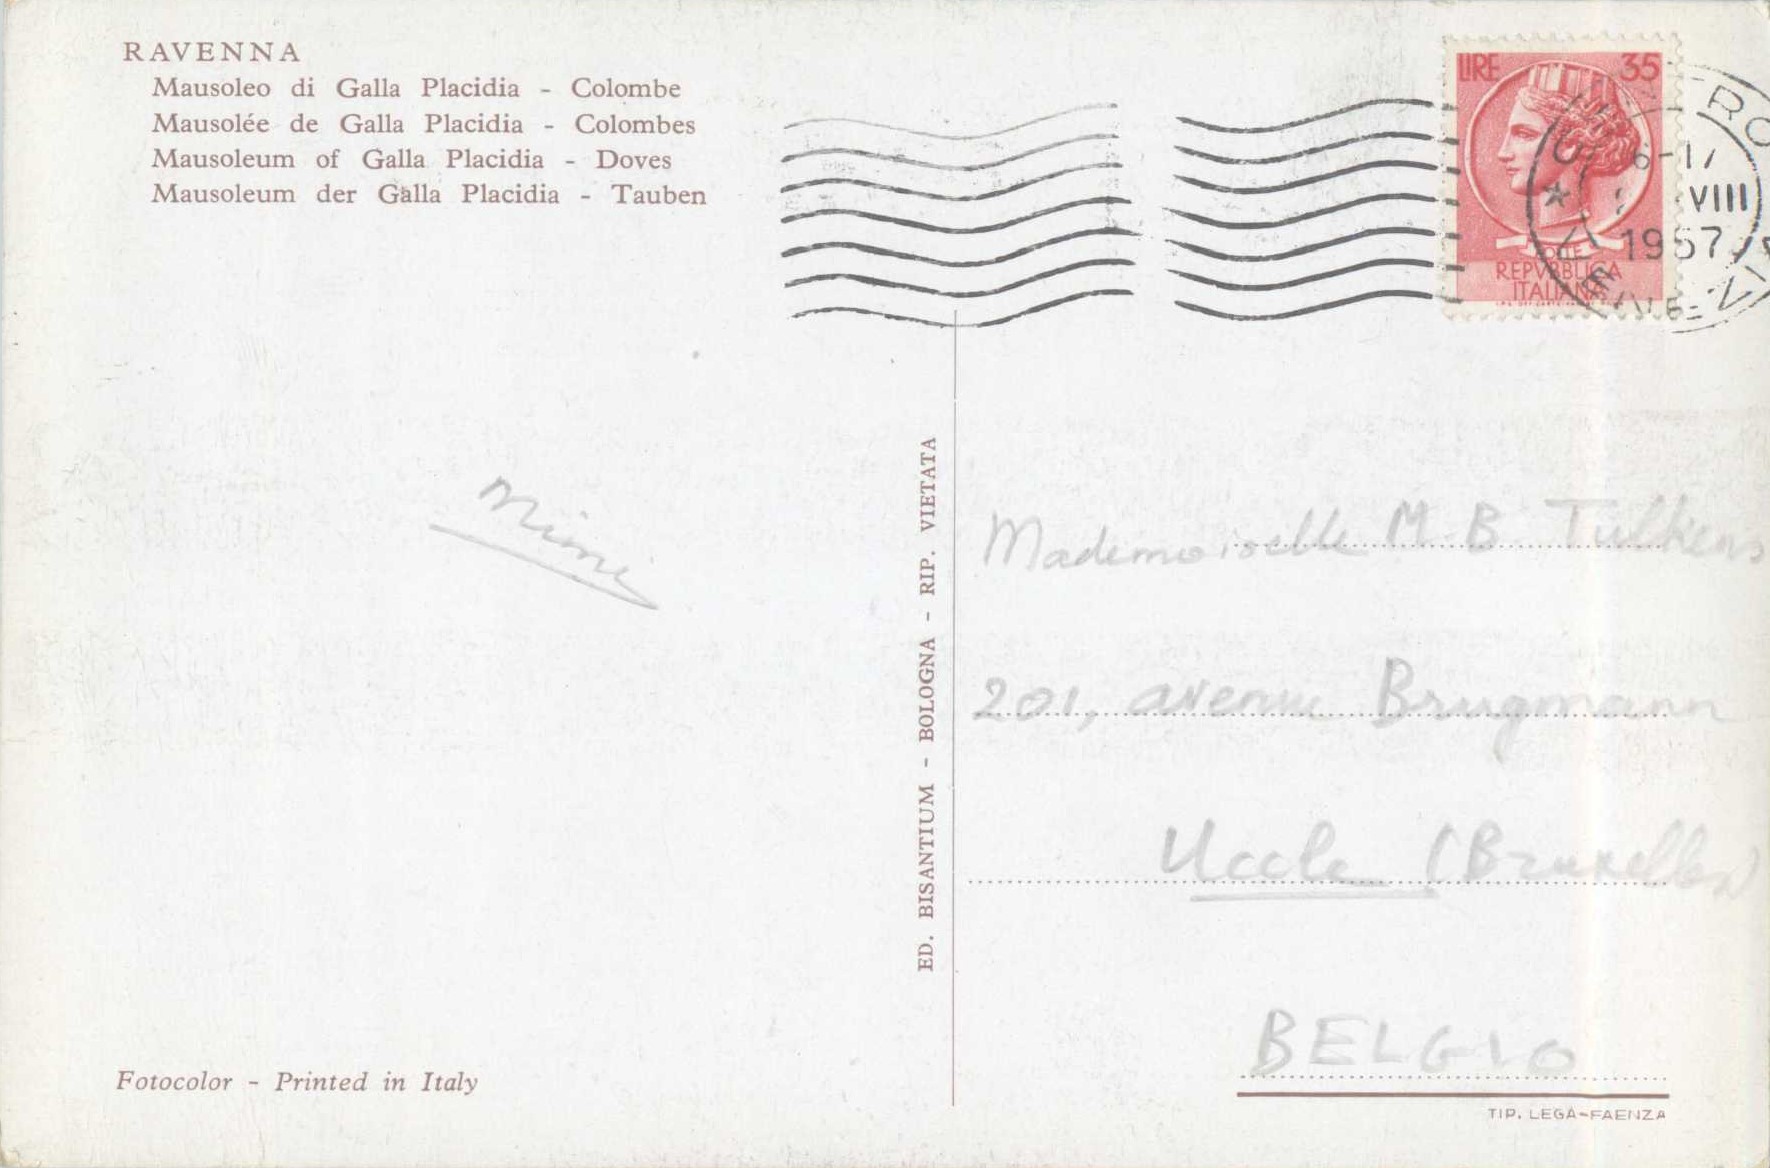 RAVENNA
Mausoleo di Galla Placidia - Colombe
Mausolée de Galla Placidia - Colombes
Mausoleum of Galla Placidia - Doves
Mausoleum der Galla Placidia - Tauben
LIRE 35
POSTE
REPVBBLICA
ITALIANA
VIII
1957
Mimi
ED. BISANTIUM - BOLOGNA - RIP. VIETATA
Mademoiselle M. B. Tulkens
201, avenue Brugmann
Uccle (Bruxelles)
BELGIO
Fotocolor - Printed in Italy
TIP. LEGA-FAENZA